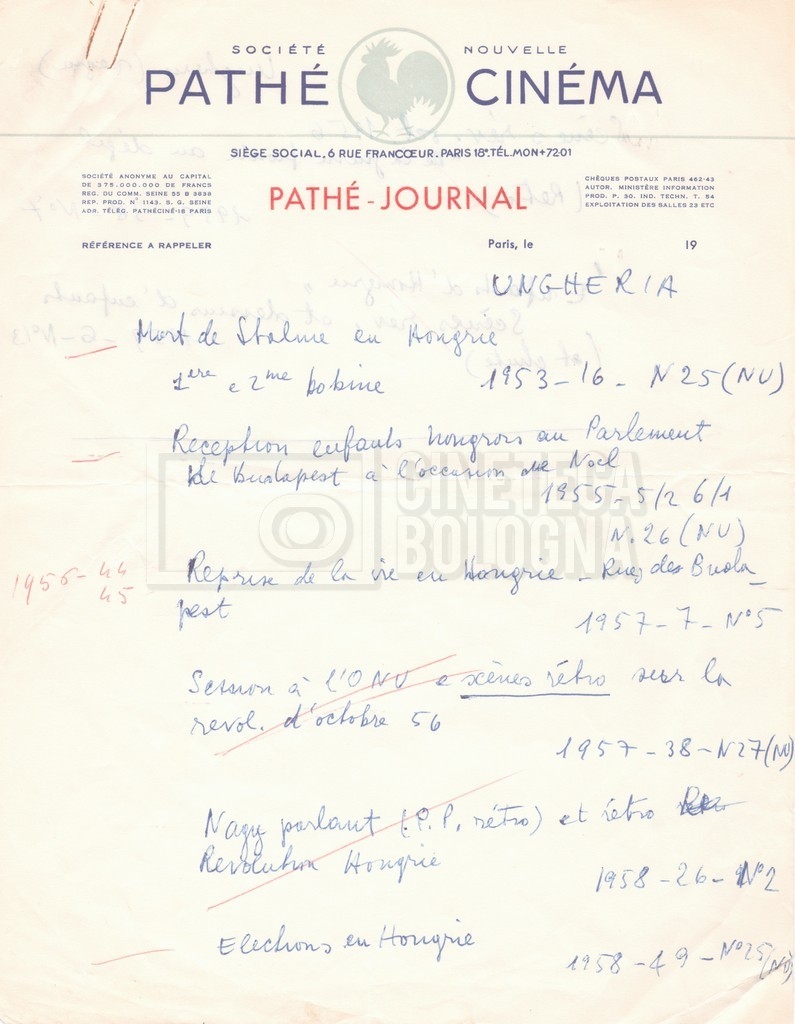 SOCIÉTÉ NOUVELLE
PATHÉ CINÉMA
SIÈGE SOCIAL. 6 RUE FRANCŒUR. PARIS 18e. TÉL. MON+72-01
SOCIÉTÉ ANONYME AU CAPITAL
DE 375.000.000 DE FRANCS
REG. DU COMM. SEINE 55 B 3838
REP. PROD. N° 1143. S. G. SEINE
ADR. TÉLÉG. PATHÉCINÉ-18 PARIS
PATHÉ-JOURNAL
CHÈQUES POSTAUX PARIS 462-43
AUTOR. MINISTÈRE INFORMATION
PROD. P. 30. IND. TECHN. T. 54
EXPLOITATION DES SALLES 23 ETC
RÉFÉRENCE A RAPPELER
Paris, le 19
UNGHERIA
Mort de Staline en Hongrie
1ere e 2me bobine 1953-16- N25(NU)
Reception enfants hongrois au Parlement
de Budapest à l'occasion de Noel
1955-5/2 6/1
N.26(NU)
CINETECA
BOLOGNA
1956-44
45
Reprise de la vie en Hongrie - Rues des Buda_
pest
1957-7-N°5
Session à l'ONU e scènes rétro sur la
revol. d'octobre 56
1957-38-N27(NU)
Nagy parlant (P.P. rétro) et rétro
Revolution Hongrie
1958-26-N°2
Elections en Hongrie
1958-49-N°25(NU)